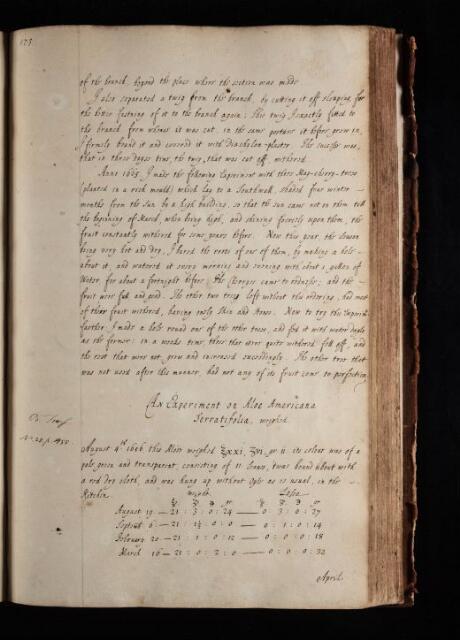 of the branch, beyond the place where the section was made.
I also separated a twig from the branch, by cutting it off sloaping, for
the better fastning of it to the branch again; This twig I exactly fitted to
the branch from whence it was cut, in the same posture it before grew in,
I firmly bound it and covered it with Diachalon-plaster. The successe was,
that in three dayes time, the twig, that was cut off, withered.
Anno 1665. I made the following Experiment with three May-cherry-trees
(planted in a rich mould) which lay to a Southwall, shaded four winter
months from the Sun by a high building, so that the sun came not on them till
the beginning of March, when being high, and shining fiercely upon them, the
fruit constantly withered for some years before. Now this year, the season
being very hot and dry, I bared the roots of one of them, by making a hole
about it, and watered it every morning and evening with about a gallon of
Water, for about a fortnight before the Cherryes came to rednesse; and the
fruit were full and good. The other two trees left without this ordering, had most
of their fruit withered, having only Skin and stones. Now to try this Experiment
further, I made a hole round one of the other trees, and fed it with water dayly
as the former: in a weeks time, those that were quite withered fell off, and
the rest that were not, grew and increased exceedingly. The other tree that
was not used after this manner, had not any of its fruit come to perfection
An Experiment on Aloe Americana
Serratifolia, weighed.
August 4th 1666 this Aloes weighed ℥xxi. ʒvi. gr ii its colour was of a
pale green and transparent, consisting of 11 leaves, twas bound about with
a red dry cloth, and was hung up without Oyle as is usual, in the
Kitchin.
weighed. Losse.
℥ ʒ ℈ gr ℥ ʒ ℈ gr
August 19 — 21 : 3 : 0 : 24 — 0 : 3 : 0 : 27
Septemb 6 — 21 : : 0 : 0 — 0 : 1 : 0 : 14
February 20 — 21 : 1 : 0 : 12 — 0 : 0 : 0 : 18
March 16 — 21 : 0 : 2 : 0 — 0 : 0 : 0 : 32
April